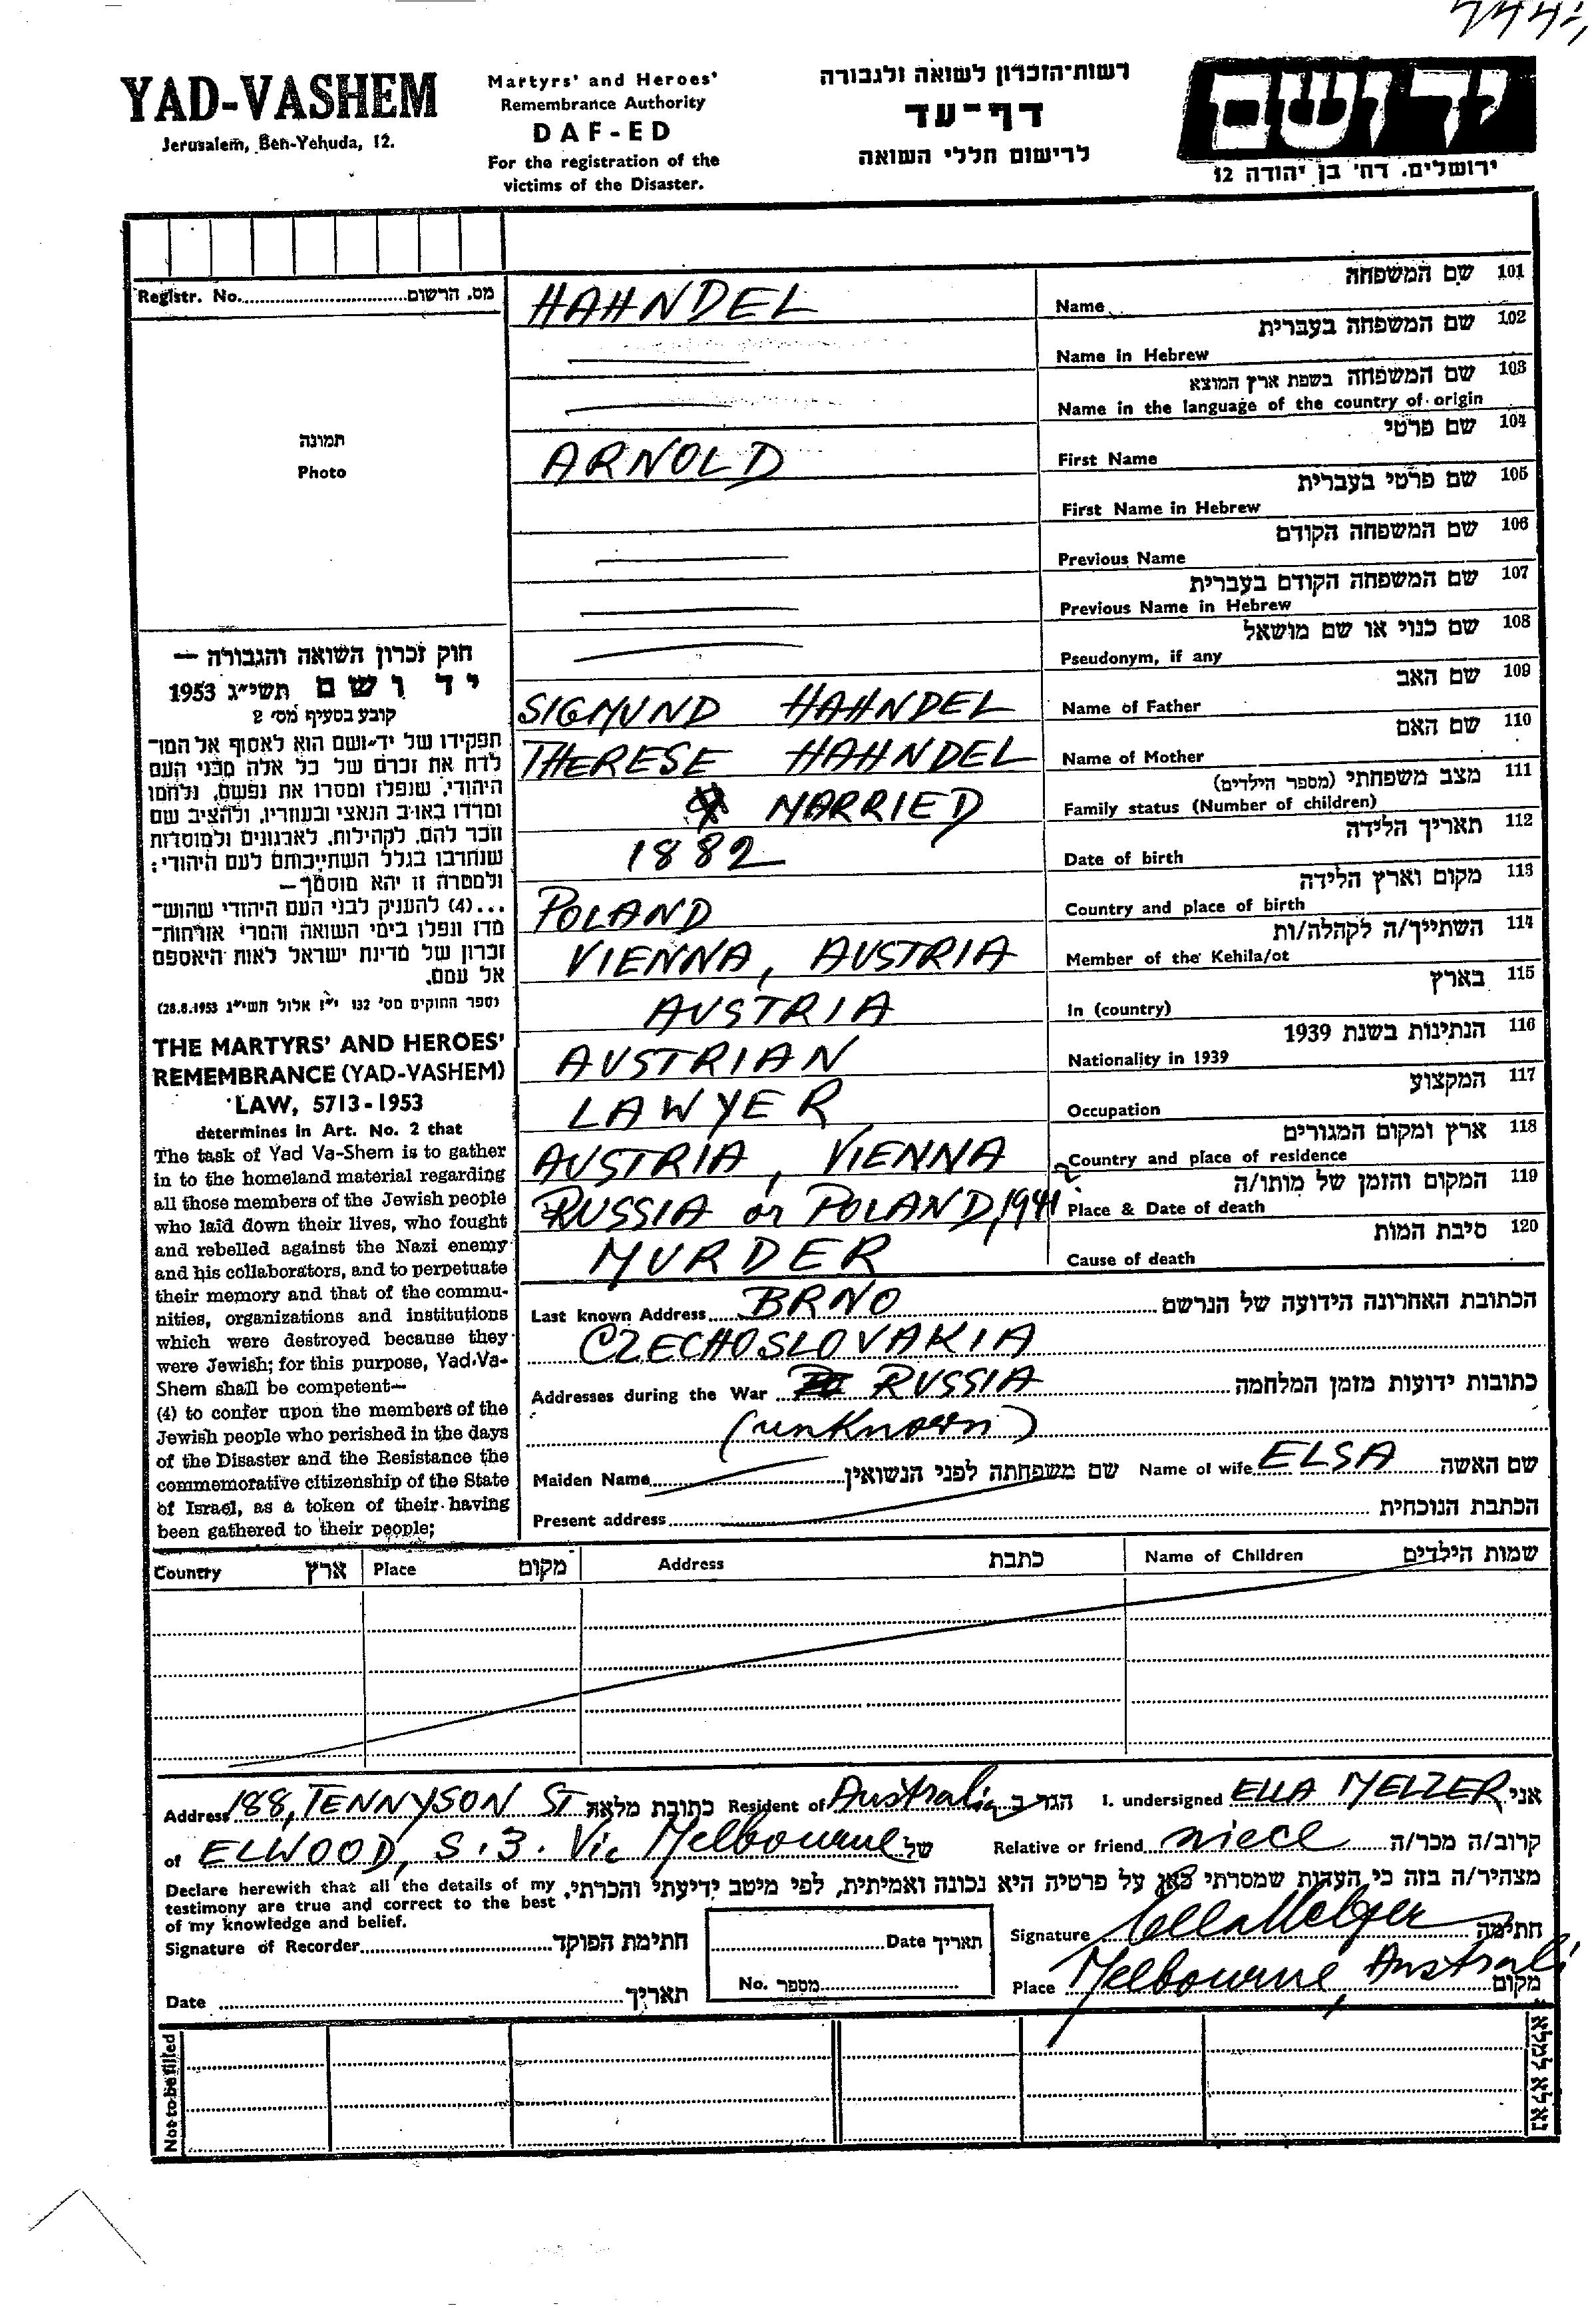 YAD-VASHEM
Jerusalem, Ben-Yehuda, 12.
Martyrs' and Heroes'
Remembrance Authority
DAF-ED
For the registration of the
victims of the Disaster.
רשות-הזכרון לשואה ולגבורה
דף-עד
לרישום חללי השואה
יד ושם
ירושלים, רח' בן יהודה 12
Registr. No. מס. הרשום
תמונה
Photo
HAHNDEL
שם המשפחה 101
Name
שם המשפחה בעברית 102
Name in Hebrew
שם המשפחה בשפת ארץ המוצא 103
Name in the language of the country of origin
ARNOLD
שם פרטי 104
First Name
שם פרטי בעברית 105
First Name in Hebrew
שם המשפחה הקודם 106
Previous Name
שם המשפחה הקודם בעברית 107
Previous Name in Hebrew
שם כנוי או שם מושאל 108
Pseudonym, if any
SIGMUND HAHNDEL
שם האב 109
Name of Father
THERESE HAHNDEL
שם האם 110
Name of Mother
MARRIED
מצב משפחתי (מספר הילדים) 111
Family status (Number of children)
1882
תאריך הלידה 112
Date of birth
POLAND
מקום וארץ הלידה 113
Country and place of birth
VIENNA, AUSTRIA
השתייך/ה לקהלה/ות 114
Member of the Kehila/ot
AUSTRIA
בארץ 115
In (country)
AUSTRIAN
הנתינות בשנת 1939 116
Nationality in 1939
LAWYER
המקצוע 117
Occupation
AUSTRIA, VIENNA
ארץ ומקום המגורים 118
Country and place of residence
RUSSIA or POLAND, 1941
המקום והזמן של מותו/ה 119
Place & Date of death
MURDER
סיבת המות 120
Cause of death
חוק זכרון השואה והגבורה —
יד ושם תשי"ג 1953
קובע בסעיף מס' 2
תפקידו של יד-ושם הוא לאסוף אל המו-
לדת את זכרם של כל אלה מבני העם
היהודי, שנפלו ומסרו את נפשם, נלחמו
ומרדו באויב הנאצי ובעוזריו, ולהציב שם
וזכר להם, לקהילות, לארגונים ולמוסדות
שנחרבו בגלל השתייכותם לעם היהודי;
ולמטרה זו יהא מוסמך—
...(4) להעניק לבני העם היהודי שהוש-
מדו ונפלו בימי השואה והמרי אזרחות-
זכרון של מדינת ישראל לאות היאספם
אל עמם.
(ספר החוקים מס' 132 י"ז אלול תשי"ג 28.8.1953)
THE MARTYRS' AND HEROES'
REMEMBRANCE (YAD-VASHEM)
LAW, 5713-1953
determines in Art. No. 2 that
The task of Yad Va-Shem is to gather
in to the homeland material regarding
all those members of the Jewish people
who laid down their lives, who fought
and rebelled against the Nazi enemy
and his collaborators, and to perpetuate
their memory and that of the commu-
nities, organizations and institutions
which were destroyed because they
were Jewish; for this purpose, Yad-Va-
Shem shall be competent—
(4) to confer upon the members of the
Jewish people who perished in the days
of the Disaster and the Resistance the
commemorative citizenship of the State
of Israel, as a token of their having
been gathered to their people;
Last known Address BRNO הכתובת האחרונה הידועה של הנרשם
CZECHOSLOVAKIA
Addresses during the War RUSSIA כתובות ידועות מזמן המלחמה
(unknown)
Maiden Name שם משפחתה לפני הנשואין Name of wife ELSA שם האשה
Present address הכתבת הנוכחית
Country ארץ Place מקום Address כתבת Name of Children שמות הילדים
Address 188, TENNYSON ST כתובת מלאה Resident of Australia הגר ב I, undersigned ELLA MELZER אני
of ELWOOD, S.3. Vic Melbourne של Relative or friend niece קרוב/ה מכר/ה
מצהיר/ה בזה כי העדות שמסרתי כאן על פרטיה היא נכונה ואמיתית, לפי מיטב ידיעתי והכרתי.
Declare herewith that all the details of my
testimony are true and correct to the best
of my knowledge and belief.
Signature of Recorder חתימת הפוקד
Date תאריך
Date תאריך
No. מספר
Signature Ella Melzer חתימה
Place Melbourne, Australi מקום
Not to be filled
נא לא למלא